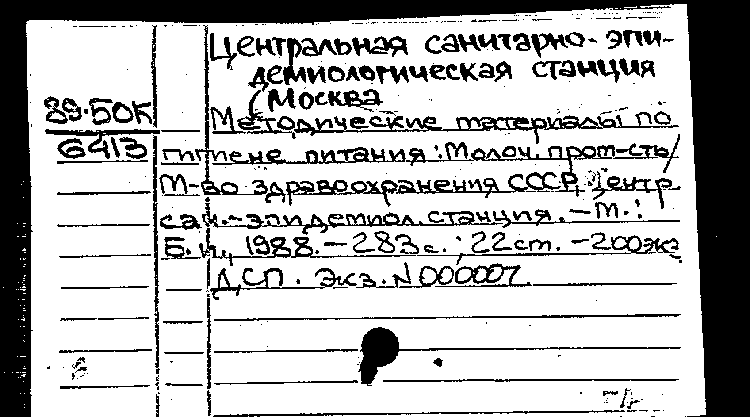 Центральная санитарно-эпи-
демиологическая станция
(Москва
89.50К Методические материалы по
6413 гигиене питания: Молоч. пром-сть/
М-во здравоохранения СССР, Центр.
сан.-эпидемиол. станция. – М.:
Б.и., 1988. – 283с.; 22см. – 200экз
ДСП. Экз. N 000007.